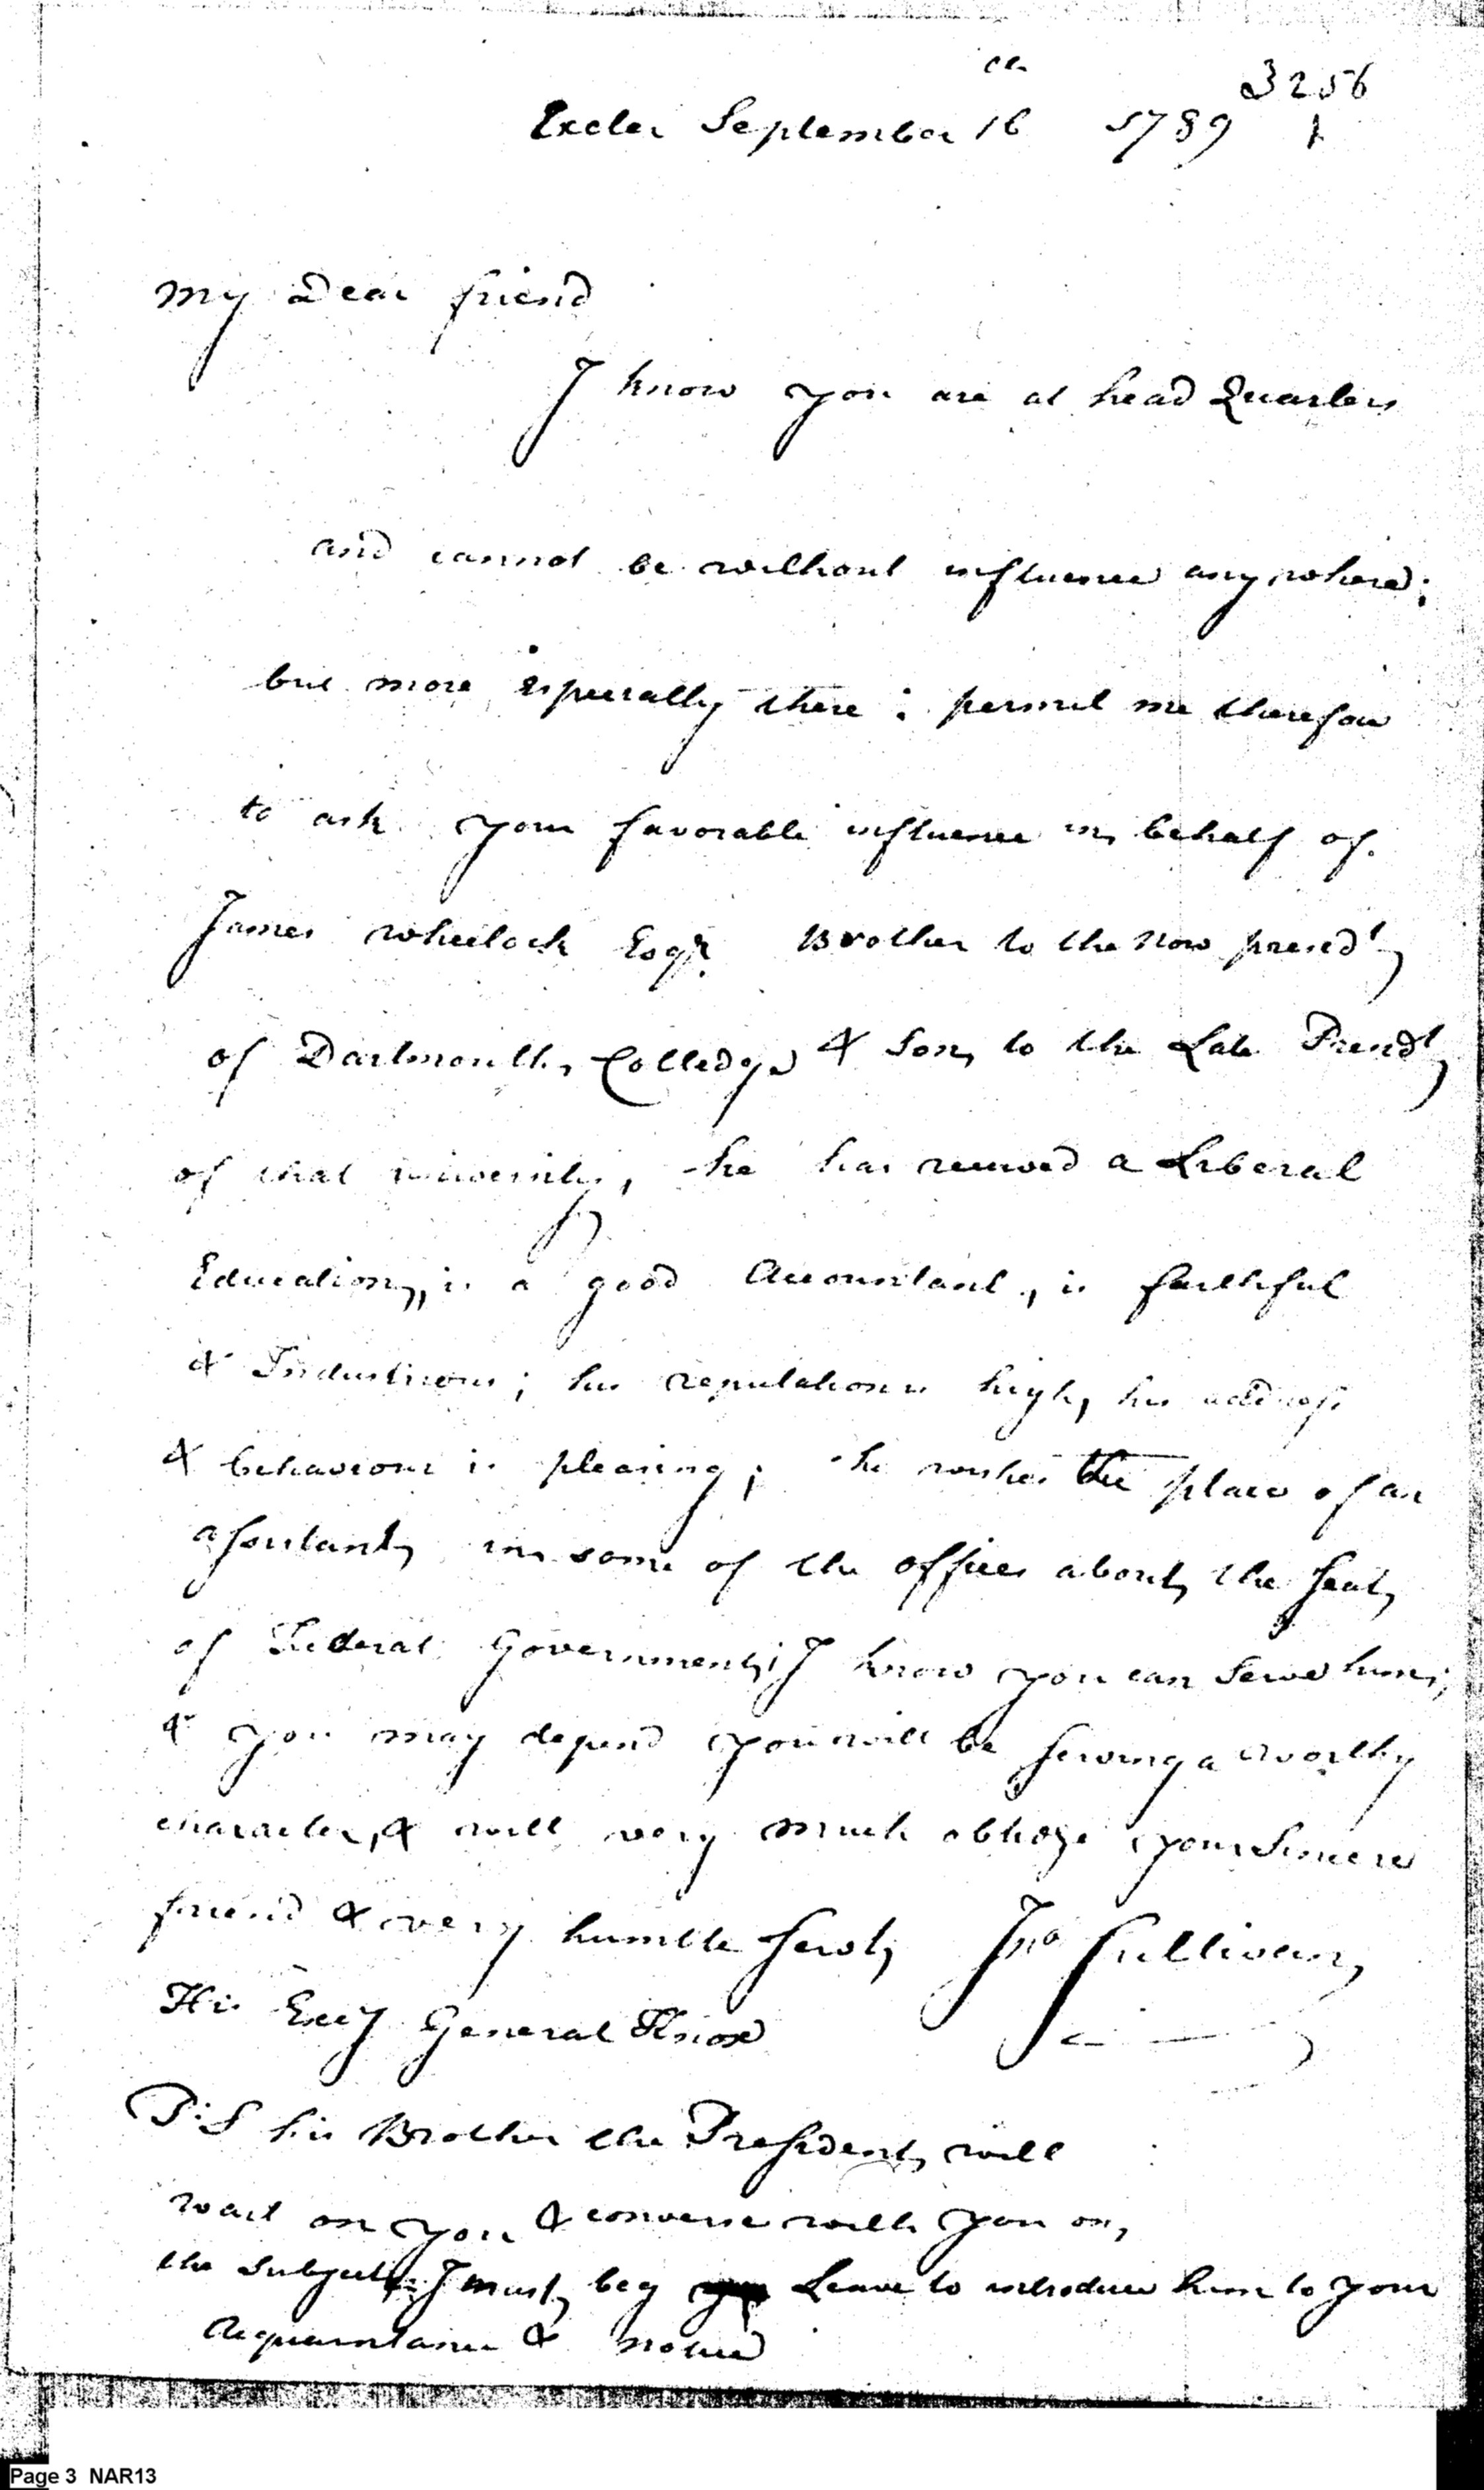 3256
Exeter September 16th 1789 1
My Dear friend
I know you are at head Quarters
and cannot be without influence any where;
but more especially there: permit me therefore
to ask your favorable influence in behalf of
James wheelock Esqr. Brother to the Now presedt
of Dartmouth Colledge & Son to the Late Presedt
of that university, he has received a Liberal
Education, is a good Accountant, is faithful
& Industrious; his reputation is high, his address
& behaviour is pleasing; he wishes the place of an
assistant in some of the offices about the Seat
of Federal Government; I know you can Serve him;
& you may depend you will be serving a worthy
character, & will very much oblidge your Sincere
friend & very humble servt Jno Sullivan
His Excy General Knox
P:S his Brother the President will
wait on you & converse with you on
the subject: I must beg Leave to introduce him to your
Acquaintance & notice
Page 3 NAR13